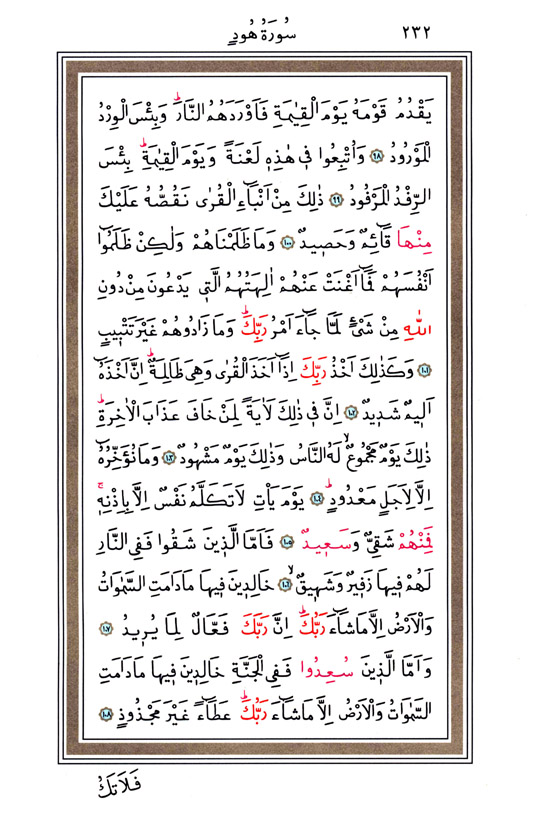 سُورَةُ هُودٍ ٢٣٢
يَقْدُمُ قَوْمَهُ يَوْمَ الْقِيٰمَةِ فَاَوْرَدَهُمُ النَّارَۜ وَبِئْسَ الْوِرْدُ
الْمَوْرُودُ ﴿٩٨﴾ وَاُتْبِعُوا ف۪ي هٰذِه۪ لَعْنَةً وَيَوْمَ الْقِيٰمَةِۜ بِئْسَ
الرِّفْدُ الْمَرْفُودُ ﴿٩٩﴾ ذٰلِكَ مِنْ اَنْبَٓاءِ الْقُرٰى نَقُصُّهُ عَلَيْكَ
مِنْهَا قَٓائِمٌ وَحَص۪يدٌ ﴿١٠٠﴾ وَمَا ظَلَمْنَاهُمْ وَلٰكِنْ ظَلَمُٓوا
اَنْفُسَهُمْ فَمَٓا اَغْنَتْ عَنْهُمْ اٰلِهَتُهُمُ الَّت۪ي يَدْعُونَ مِنْ دُونِ
اللّٰهِ مِنْ شَيْءٍ لَمَّا جَٓاءَ اَمْرُ رَبِّكَۜ وَمَا زَادُوهُمْ غَيْرَ تَتْب۪يبٍ
﴿١٠١﴾ وَكَذٰلِكَ اَخْذُ رَبِّكَ اِذَٓا اَخَذَ الْقُرٰى وَهِيَ ظَالِمَةٌۜ اِنَّ اَخْذَهُٓ
اَل۪يمٌ شَد۪يدٌ ﴿١٠٢﴾ اِنَّ ف۪ي ذٰلِكَ لَاٰيَةً لِمَنْ خَافَ عَذَابَ الْاٰخِرَةِۜ
ذٰلِكَ يَوْمٌ مَجْمُوعٌۙ لَهُ النَّاسُ وَذٰلِكَ يَوْمٌ مَشْهُودٌ ﴿١٠٣﴾ وَمَا نُؤَخِّرُهُٓ
اِلَّا لِاَجَلٍ مَعْدُودٍۜ ﴿١٠٤﴾ يَوْمَ يَأْتِ لَا تَكَلَّمُ نَفْسٌ اِلَّا بِاِذْنِه۪ۚ
فَمِنْهُمْ شَقِيٌّ وَسَع۪يدٌ ﴿١٠٥﴾ فَاَمَّا الَّذ۪ينَ شَقُوا فَفِي النَّارِ
لَهُمْ ف۪يهَا زَف۪يرٌ وَشَه۪يقٌۙ ﴿١٠٦﴾ خَالِد۪ينَ ف۪يهَا مَا دَامَتِ السَّمٰوَاتُ
وَالْاَرْضُ اِلَّا مَا شَٓاءَ رَبُّكَۜ اِنَّ رَبَّكَ فَعَّالٌ لِمَا يُر۪يدُ ﴿١٠٧﴾
وَاَمَّا الَّذ۪ينَ سُعِدُوا فَفِي الْجَنَّةِ خَالِد۪ينَ ف۪يهَا مَا دَامَتِ
السَّمٰوَاتُ وَالْاَرْضُ اِلَّا مَا شَٓاءَ رَبُّكَۜ عَطَٓاءً غَيْرَ مَجْذُوذٍ ﴿١٠٨﴾
فَلَا تَكُ